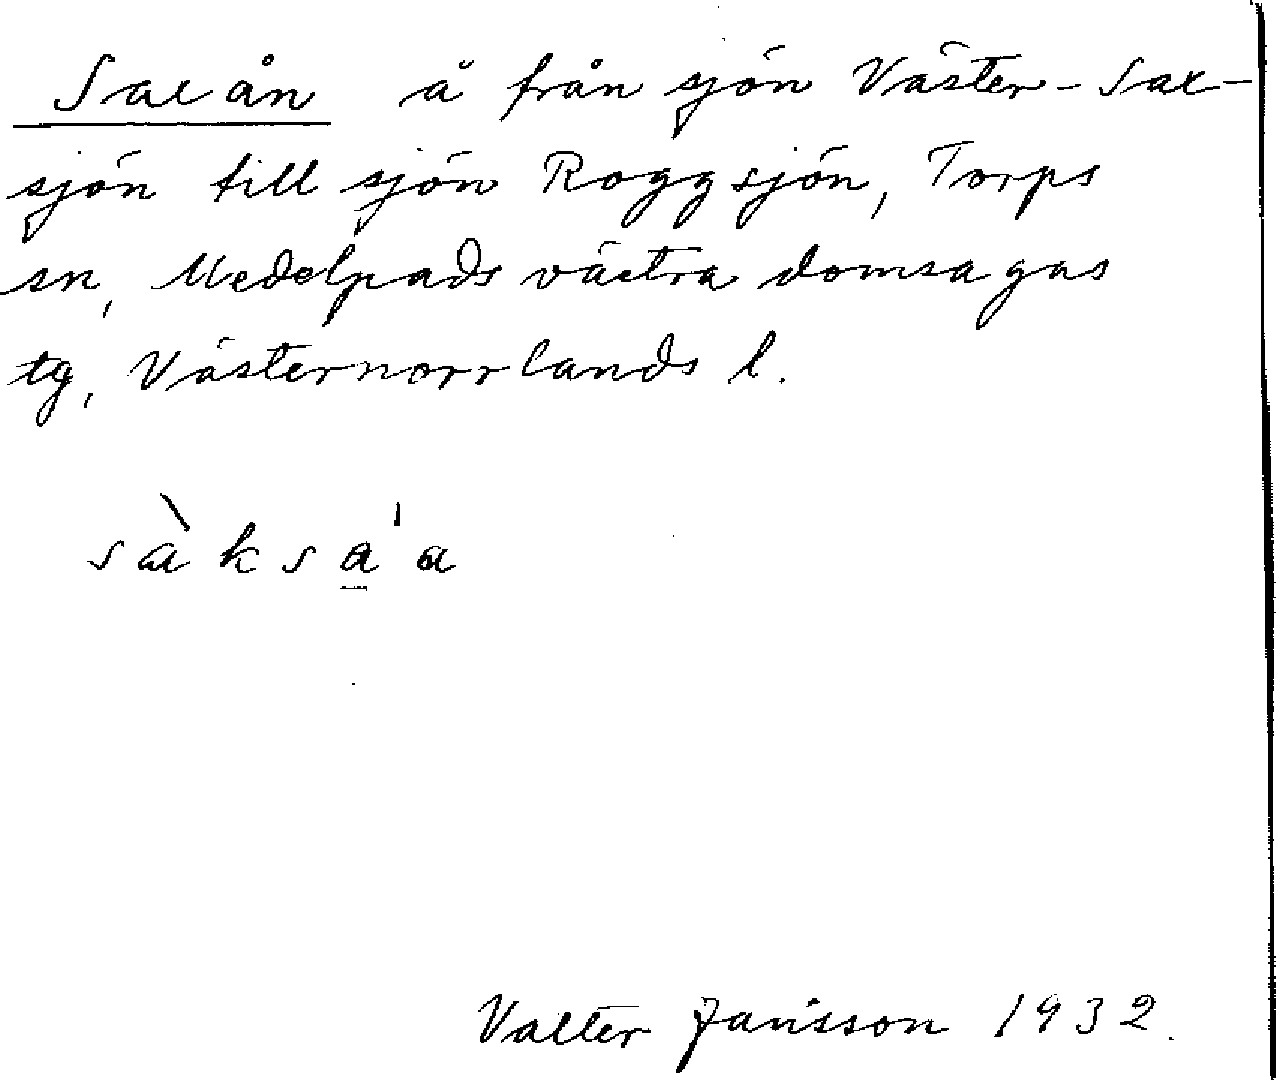 Saxån å från sjön Väster-Sax-
sjön till sjön Roggsjön, Torps
sn, Medelpads västra domsagas
tg, Västernorrlands l.
sàksa̲'a
Valter Jansson 1932.